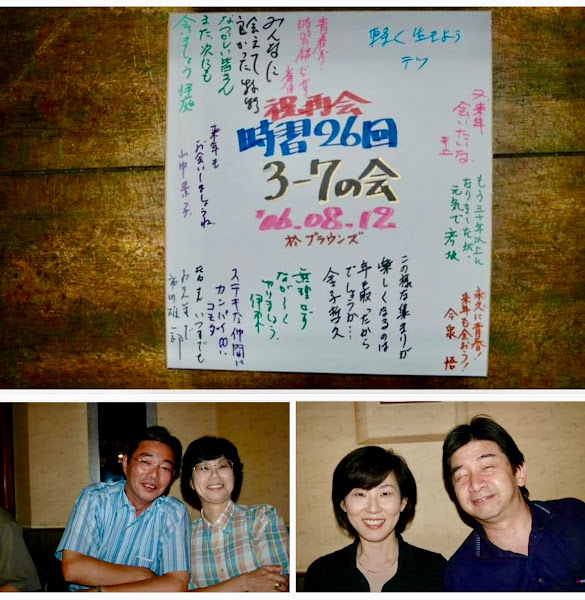 軽く生きよう
テツ
青春だ!
みんなに
会えて
良かった 牧野
なつかしい皆さん
また、次にも
会いましょう 伊庭
祝再会
時習26回
3-7の会
'06.08.12
於 ブラウンズ
又来年
会いたいね。
井上
もう三十年以上に
なりましたが、
元気で 彦坂
来年も
お会いしましょうね。
山中 景子
この様な集まりが
楽しくなるのは
年を取ったから
でしょうか…
金子哲久
永久に青春!
来年も会おう!
今泉 悟
無理せず
なが〜く
やりましょう。
伊東
ステキな仲間に
カンパイ
いつまでも
市川雄一郎